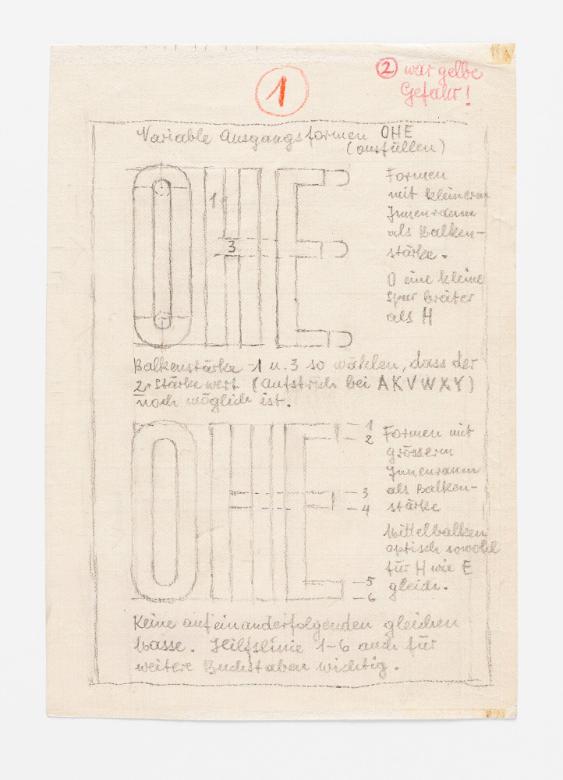 1
② war gelbe
Gefahr!
Variable Ausgangsformen OHE
(ausfüllen)
OHE
1
3
Formen
mit kleinerem
Innenraum
als Balken-
stärke.
O eine kleine
Spur breiter
als H
Balkenstärke 1 u. 3 so wählen, dass der
2. Stärkewert (Aufstrich bei AKVWXY)
noch möglich ist.
OHE
1
2
3
4
5
6
Formen mit
grösserm
Innenraum
als Balken-
stärke
Mittelbalken
optisch sowohl
für H wie E
gleich.
Keine aufeinanderfolgenden gleichen
Masse. Hilfslinie 1-6 auch für
weitere Buchstaben wichtig.